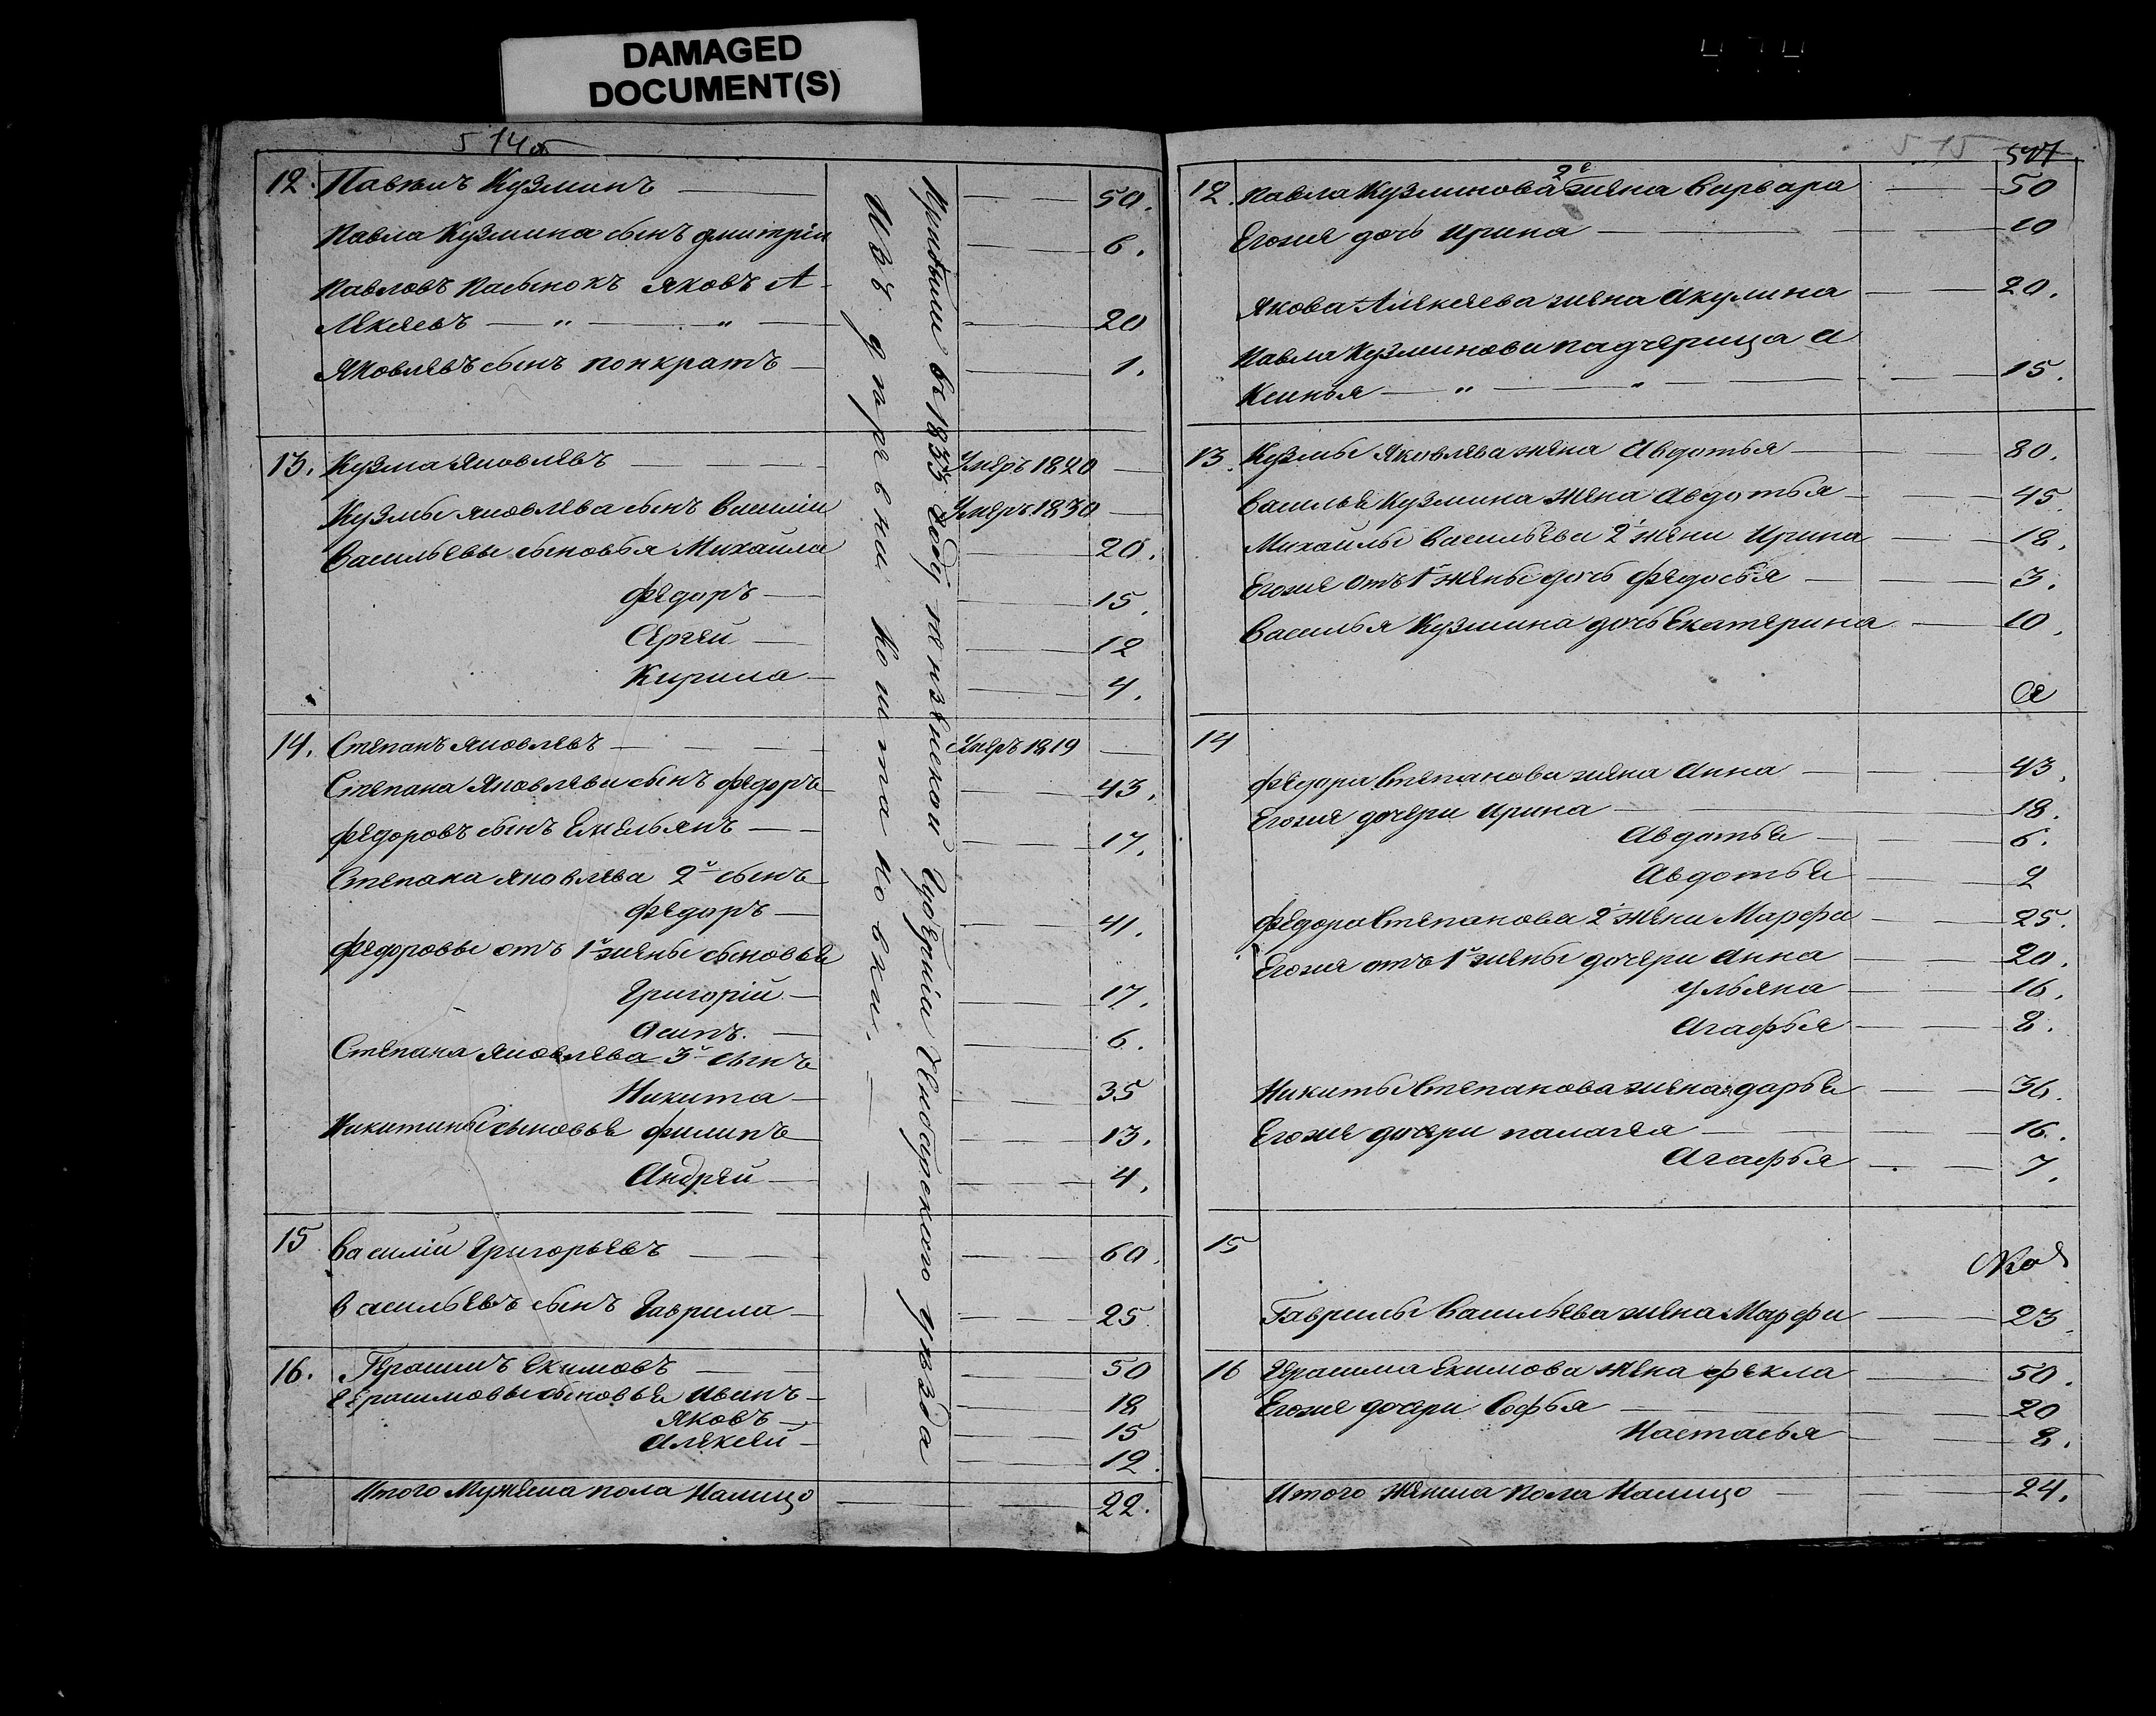 DAMAGED
DOCUMENT(S)
514об
12. Павелъ Кузминъ — 50.
Павла Кузмина сынъ дмитрiи — 6.
Павловъ пасынокъ яковъ А
лексеевъ — " — " — 20
Яковлевъ сынъ понкратъ — 1.
13. Кузма яковлевъ — Умеръ 1820 —
Кузмы яковлева сынъ Василiи Умеръ 1830 —
Васильевы сыновья Михаила — 20.
Федоръ — 15.
Сергей — 12
Кирила — 4.
14. Степанъ яковлевъ — Умеръ 1819 —
Степана Яковлева сынъ федоръ — 43.
федоровъ сынъ Емельянъ — 17.
Степана яковлева 2й сынъ
Федоръ — 41.
федоровы отъ 1й жены сыновья
Григорiй — 17.
Асипъ. — 6.
Степана яковлева 3й сынъ
Никита — 35
Никитины сыновья филипъ — 13.
Андрей — 4.
15 Василiи Григорьевъ — 60.
Васильевъ сынъ Гаврила — 25
16. Герасимъ Екимовъ — 50
Герасимовы сыновья иванъ — 18
Яковъ — 15
Алексеи — 12.
Итого Мужеска пола Налицо — 22.
Изъ деревни Коштановки.
Прибыли в 1835 году пензенской Губернiи Инсарского уезда
515 517
12. Павла Кузминова 2я жена Варвара — 50
Егоже дочь Ирина — 10
Якова Алексеева жена Акулина — 20.
Павла Кузминова падчерица а
Ксинья — " — " — 15.
13. Кузмы Яковлева жена Авдотья — 80.
Василья Кузмина жена Авдотья — 45
Михаилы Васильева 2я жена Ирина — 18.
Егоже отъ 1й жены дочь федосья — 3.
Василья Кузмина дочь Екатерина — 10.
14
Федора Степанова жена Анна — 43.
Егоже дочери ирина — 18.
Авдотья — 6.
Авдотья — 2
Федора Степанова 2я жена Марфа — 25.
Егоже отъ 1й жены дочери Анна — 20.
Ульяна — 16.
Агафья — 8.
Никиты Степанова жена дарья — 36.
Егоже дочери палагея — 16.
Агафья — 7.
15
Гаврилы Васильева жена Марфа — 23.
16 Герасима Екимова жена фекла — 50.
Егоже дочери Софья — 20
Настасья — 8.
Итого женска пола Налицо — 24.